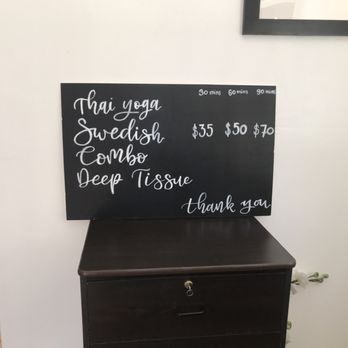 30 mins 60 mins 90 mins
Thai yoga
Swedish $35 $50 $70
Combo
Deep Tissue
thank you